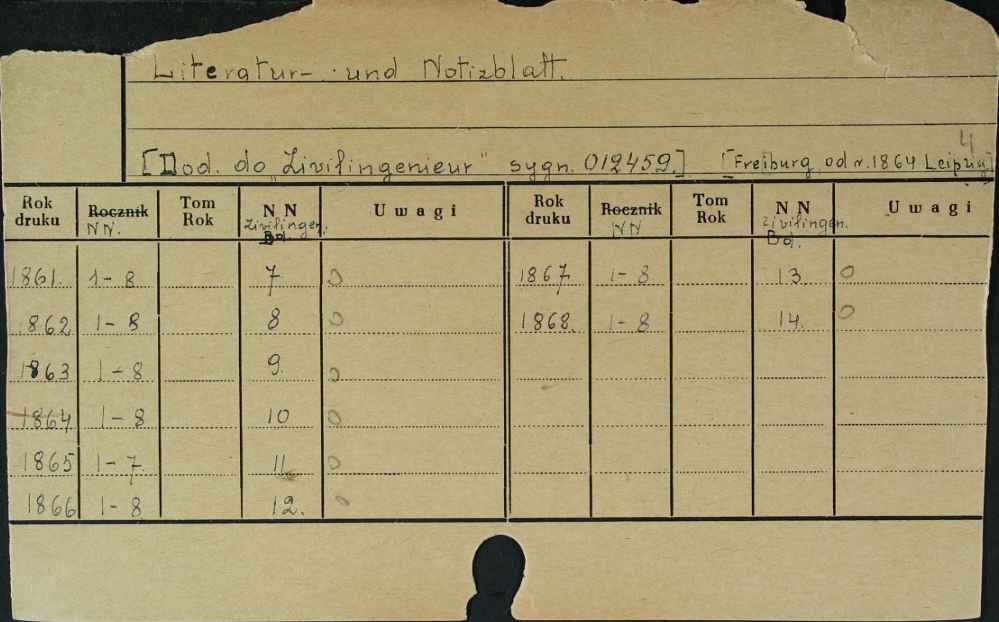 Literatur- und Notizblatt.
4
[Dod. do "Zivilingenieur" sygn. 012459.] [Freiburg, od r. 1864 Leipzig]
Rok druku Rocznik NN. Tom Rok NN Zivilingen. Bd. Uwagi Rok druku Rocznik NN Tom Rok NN Zivilingen. Bd. Uwagi
1861. 1-8 7 0 1867 1-8 13. 0
1862 1-8 8 0 1868. 1-8 14. 0
1863 1-8 9. 0
1864 1-8 10 0
1865 1-7. 11. 0
1866 1-8 12. 0